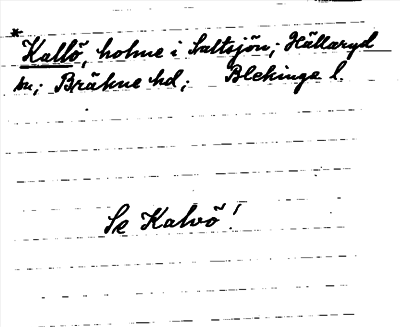 * Kallö, holme i Saltsjön; Hällaryd
sn; Bräkne hd; Blekinge l.
Se Kalvö!